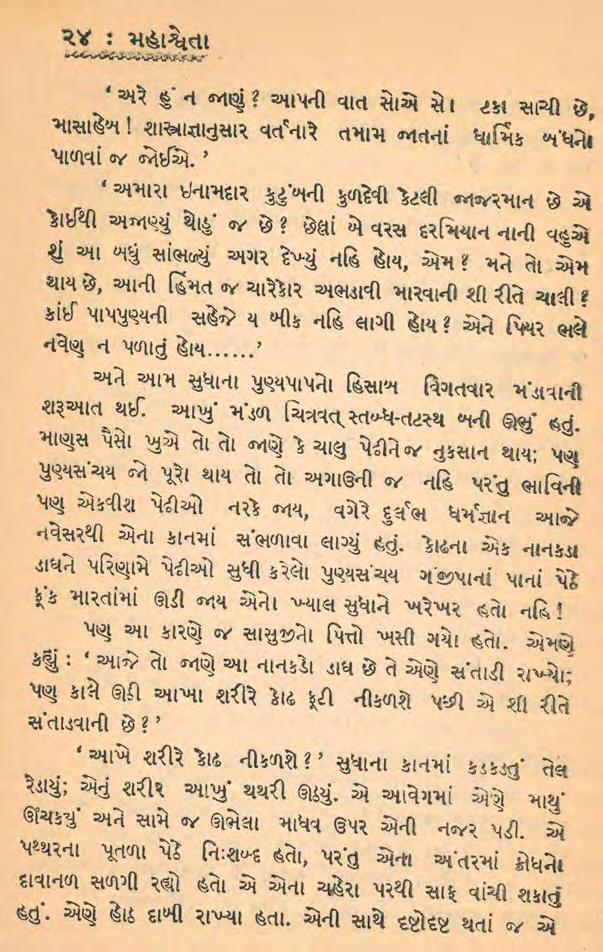 ૨૪ : મહાશ્વેતા
‘ અરે હું ન જાણું ? આપની વાત સોએ સો ટકા સાચી છે,
માસાહેબ ! શાસ્ત્રાજ્ઞાનુસાર વર્તનારે તમામ જાતનાં ધાર્મિક બંધનો
પાળવાં જ જોઈએ. ’
‘ અમારા ઇનામદાર કુટુંબની કુળદેવી કેટલી જાજરમાન છે એ
કોઈથી અજાણ્યું થોડું જ છે ? છેલ્લાં બે વરસ દરમિયાન નાની વહુએ
શું આ બધું સાંભળ્યું અગર દેખ્યું નહિ હોય, એમ ? મને તો એમ
થાય છે, આની હિંમત જ ચારેકોર અભડાવી મારવાની શી રીતે ચાલી ?
કાંઈ પાપપુણ્યની સહેજે ય બીક નહિ લાગી હોય ? એને પિયર ભલે
નવેણ ન પળાતું હોય...... ’
અને આમ સુધાના પુણ્યપાપનો હિસાબ વિગતવાર મંડાવાની
શરૂઆત થઈ. આખું મંડળ ચિત્રવત્ સ્તબ્ધ-તટસ્થ બની ઊભું હતું.
માણસ પૈસો ખુએ તો તો જાણે કે ચાલુ પેઢીને જ નુકસાન થાય; પણ
પુણ્યસંચય જો પૂરો થાય તો તો અગાઉની જ નહિ પરંતુ ભાવિની
પણ એકવીશ પેઢીઓ નરકે જાય, વગેરે દુર્લભ ધર્મજ્ઞાન આજે
નવેસરથી એના કાનમાં સંભળાવા લાગ્યું હતું. કોઢના એક નાનકડા
ડાઘને પરિણામે પેઢીઓ સુધી કરેલો પુણ્યસંચય ગંજીપાનાં પાનાં પેઠે
ફૂંક મારતાંમાં ઊડી જાય એનો ખ્યાલ સુધાને ખરેખર હતો નહિ !
પણ આ કારણે જ સાસુજીનો પિત્તો ખસી ગયો હતો. એમણે
કહ્યું : ‘ આજે તો જાણે આ નાનકડો ડાઘ છે તે એણે સંતાડી રાખ્યો;
પણ કાલે ઊઠી આખા શરીરે કોઢ ફૂટી નીકળશે પછી એ શી રીતે
સંતાડવાની છે ? ’
‘ આખે શરીરે કોઢ નીકળશે ? ’ સુધાના કાનમાં કડકડતું તેલ
રેડાયું; એનું શરીર આખું થથરી ઊઠ્યું. એ આવેગમાં એણે માથું
ઊંચક્યું અને સામે જ ઊભેલા માધવ ઉપર એની નજર પડી. એ
પથ્થરના પૂતળા પેઠે નિઃશબ્દ હતો, પરંતુ એના અંતરમાં ક્રોધનો
દાવાનળ સળગી રહ્યો હતો એ એના ચહેરા પરથી સાફ વાંચી શકાતું
હતું. એણે હોઠ દાબી રાખ્યા હતા. એની સાથે દૃષ્ટોદૃષ્ટ થતાં જ એ